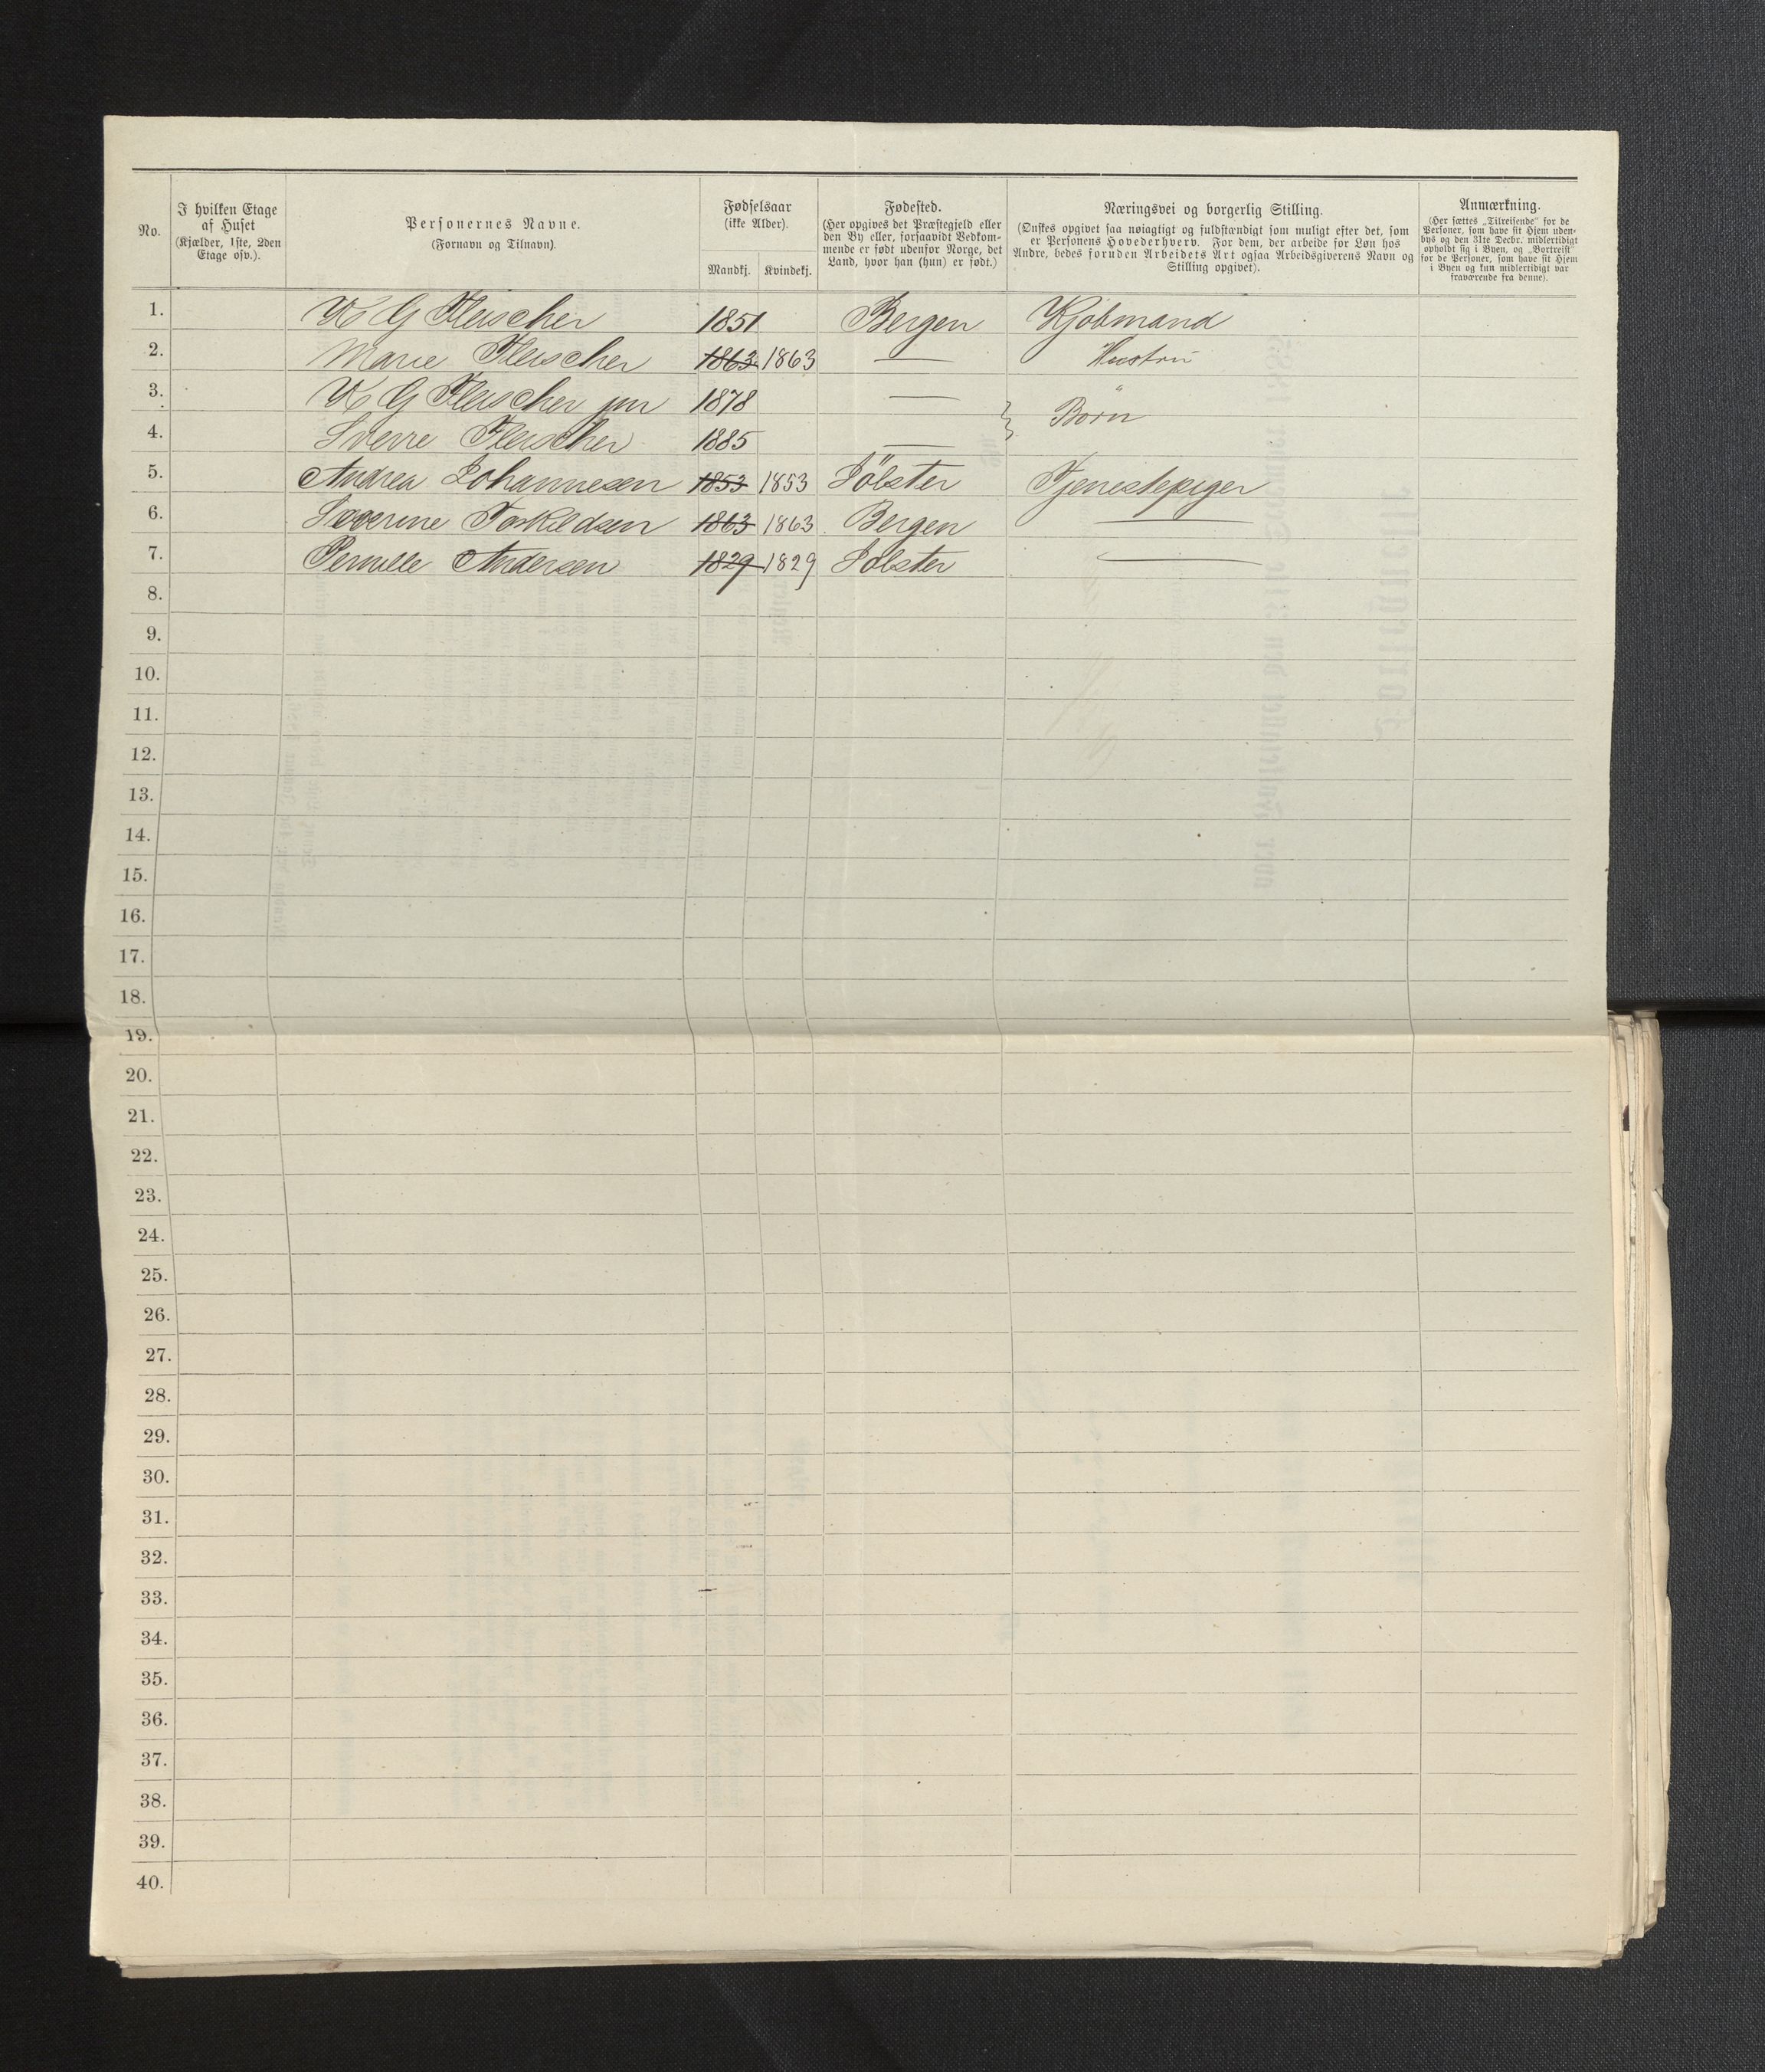 No.
I hvilken Etage af Huset (Kjælder, 1ste, 2den Etage osv.).
Personernes Navne. (Fornavn og Tilnavn).
Fødselsaar (ikke Alder).
Mandkj. Kvindekj.
Fødested. (Her opgives det Præstegjeld eller den By eller, forsaavidt Vedkommende er født udenfor Norge, det Land, hvor han (hun) er født.)
Næringsvei og borgerlig Stilling. (Ønskes opgivet saa nøiagtigt og fuldstændigt som muligt efter det, som er Personens Hovederhverv. For dem, der arbeide for Løn hos Andre, bedes foruden Arbeidets Art ogsaa Arbeidsgiverens Navn og Stilling opgivet).
Anmærkning. (Her sættes „Tilreisende" for de Personer, som have sit Hjem udenbys og den 31te Decbr. midlertidigt opholdt sig i Byen, og „Bortreist" for de Personer, som have sit Hjem i Byen og kun midlertidigt var fraværende fra denne).
1. K G Fleischer 1851 Bergen Kjöbmand
2. Marie Fleischer 1863 1863 — Hustru
3. K G Fleischer jun 1878 — } Börn
4. Sverre Fleischer 1885 —
5. Andrea Johannesen 1853 1853 Jölster Tjenestepiger
6. Severine Torkildsen 1863 1863 Bergen —
7. Pernille Andersen 1829 1829 Jolster —
8.
9.
10.
11.
12.
13.
14.
15.
16.
17.
18.
19.
20.
21.
22.
23.
24.
25.
26.
27.
28.
29.
30.
31.
32.
33.
34.
35.
36.
37.
38.
39.
40.